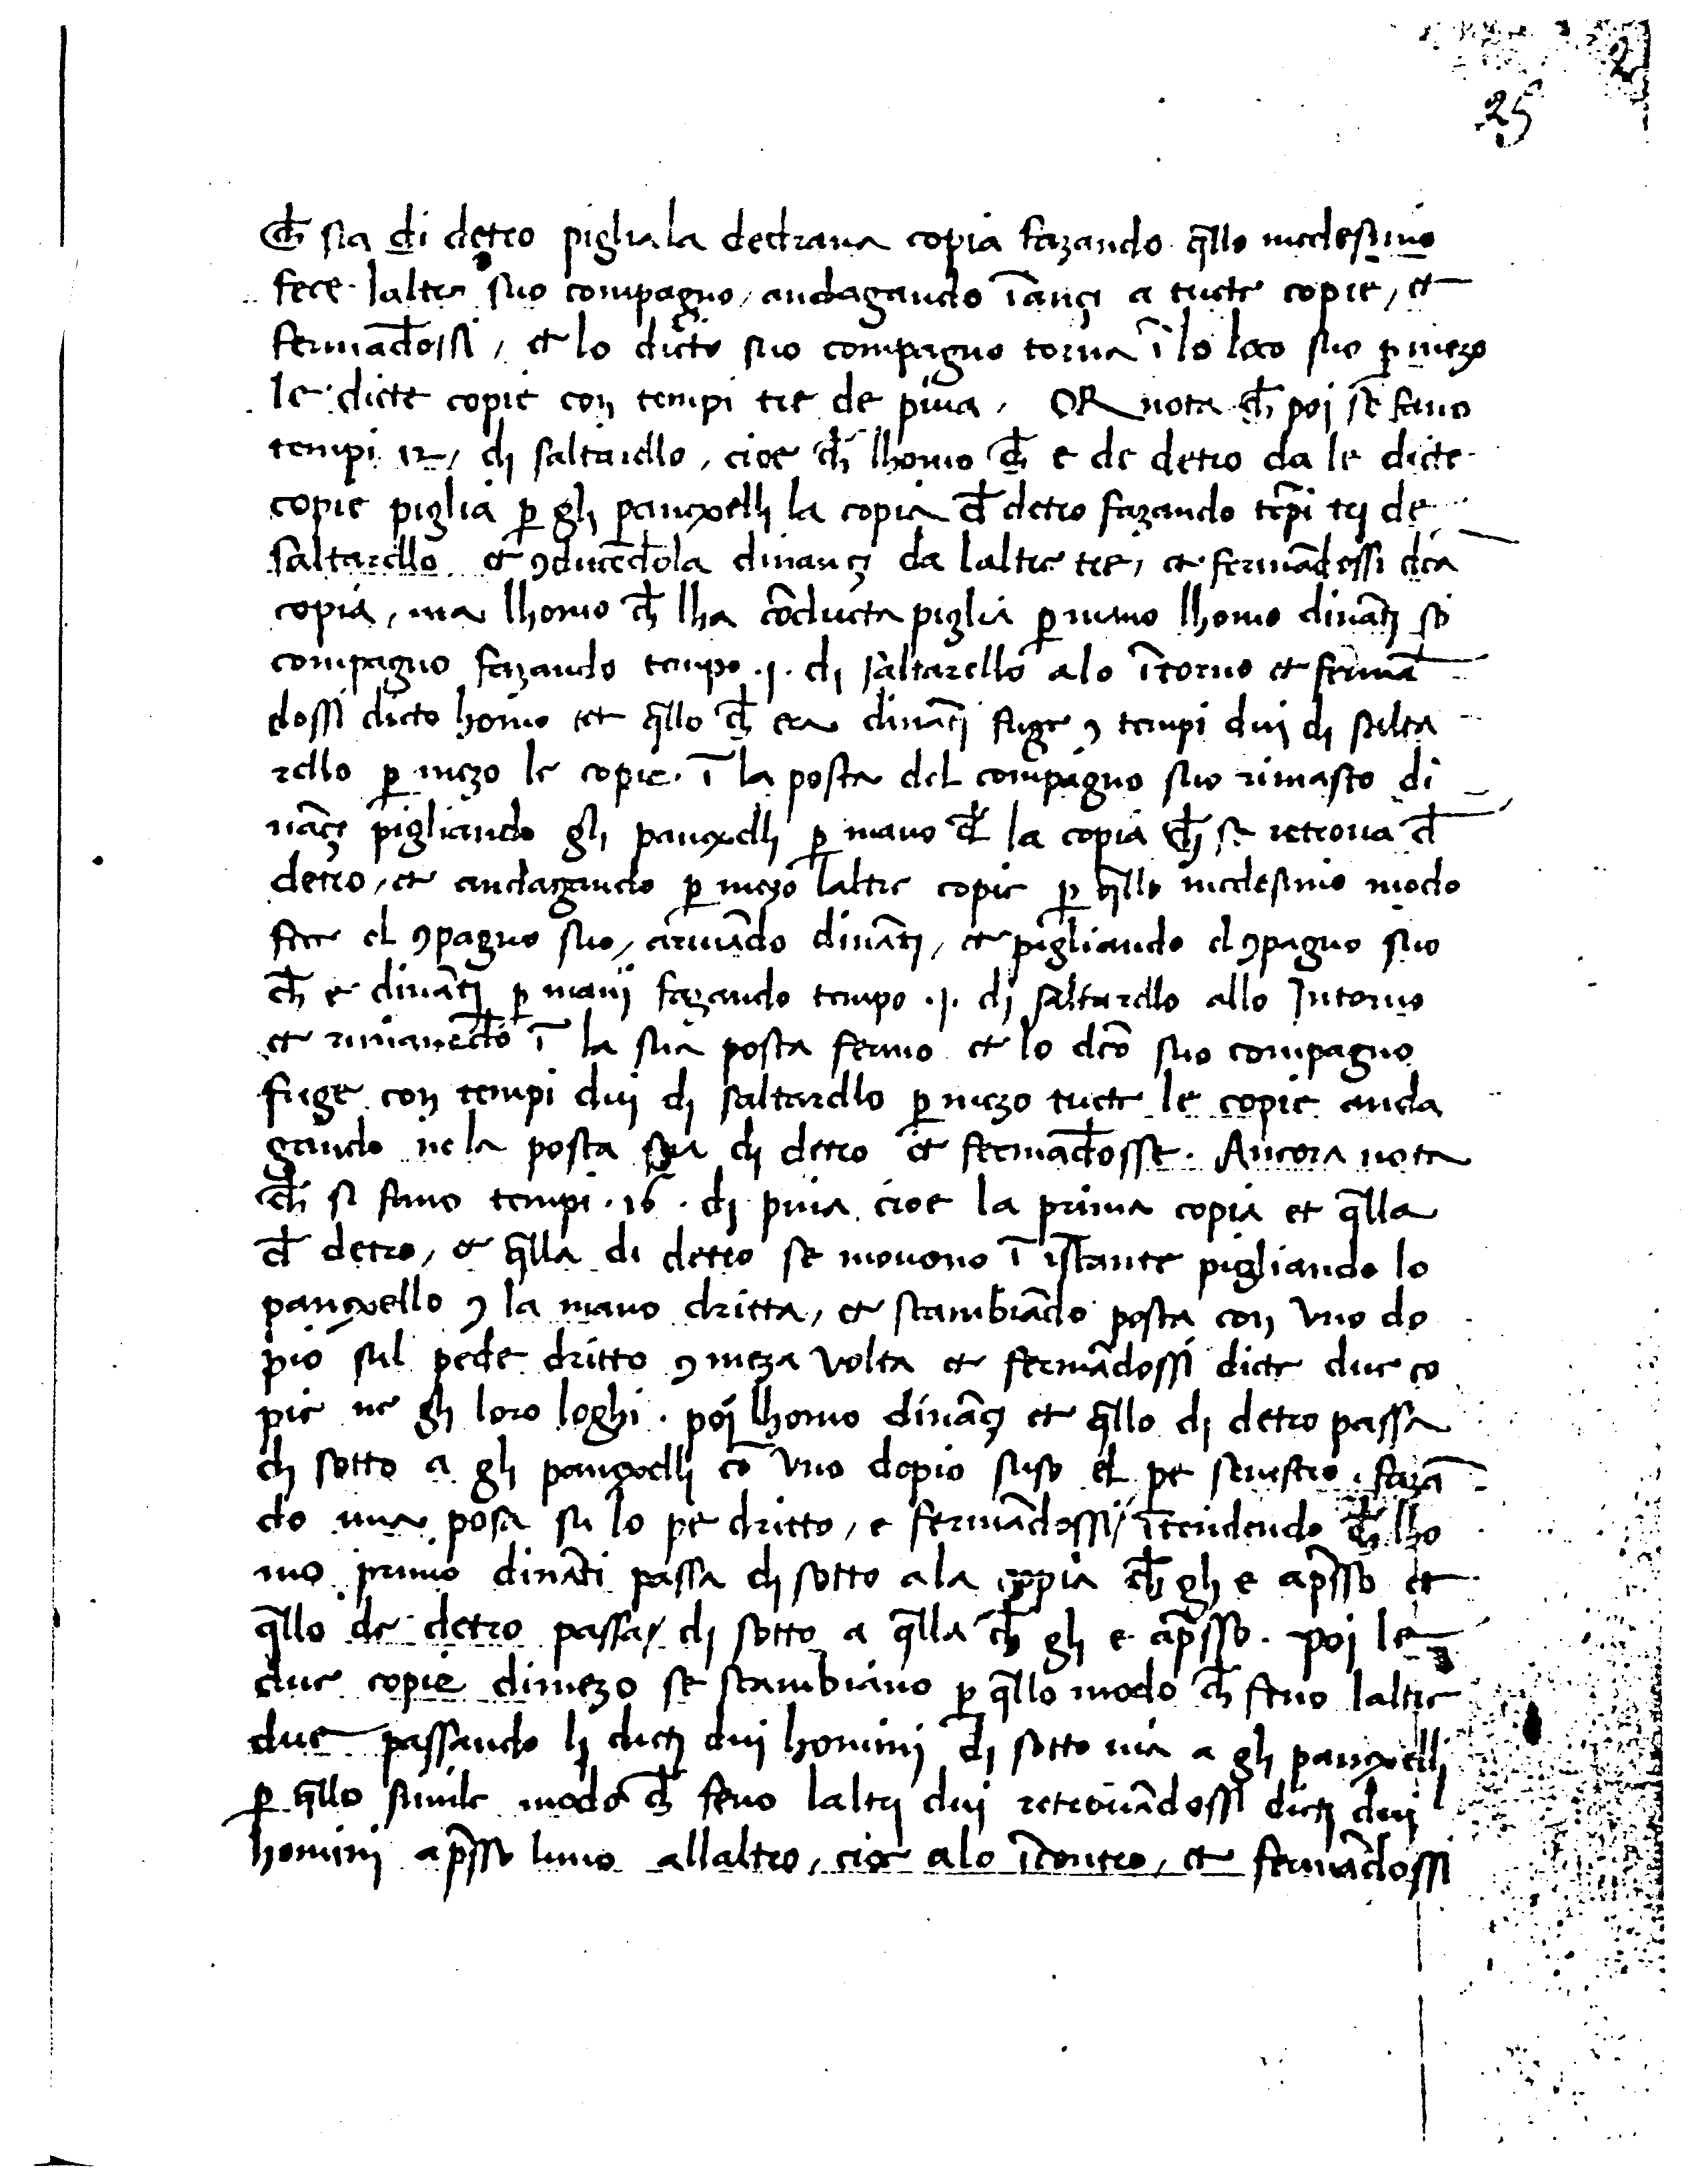 2
25
ch̄ sta di detro piglia la dedrana copia fazando q̄llo medesimo
fece laltro suo compagno, andagando īançi a tucte copie, et
fermādossi, et lo dicto suo compagno torna ī lo loco suo p̱ mezo
le dicte copie con tempi tre de piva. OR nota ch̄ poi se fano
tempi 12, di saltarello, cioe ch̄ lhomo ch̄ e de detro da le dicte
copie piglia p̱ gli panexelli la copia d̄ detro fazando tēpi trj de
saltarello et ꝯducēdola dinançj da laltre tre, et fermādossi dc̄a
copia, ma lhomo ch̄ lha cōducta piglia p̱ mano lhomo dināti so
compagno fazando tempo .j. di saltarello alo ītorno et fermā
dossi dicto homo et q̄llo ch̄ era dinātj fuge ꝯ tempi duj dj salta
rello p̱ mezo le copie. ī la posta del compagno suo rimasto di
nāçj pigliando gli panexelli p̱ mano d̄ la copia ch̄ se retrova d̄
detro, et andagando p̱ mezo laltre copie p̱ q̄llo medesimo modo
fece el ꝯpagno suo, arivādo dinātj, et pigliando el ꝯpagno suo
ch̄ e dinātj p̱ manj fazando tempo .j. dj saltarello allo Intorno
et rimanēdo ī la sua posta fermo et lo dc̄o suo compagno
fuge con tempi duj dj saltarello p̱ mezo tucte le copie anda
gando ne la posta sua dj detro et fermādosse. Ancora nota
ch̄ si fano tempi .16. dj piva cioe la prima copia et q̄lla
d̄ detro, et q̄lla di detro se movono ī istante pigliando lo
panexello ꝯ la mano dritta, et scambiādo posta con uno do
pio sul pede dritto ꝯ meza volta et fermādossi dicte due co
pie ne gli loro loghi. poj lhomo dināçj et q̄llo dj detro passa
dj sotto a gli panexelli cō uno dopio suso el pe senestro. fazā
do una posa su lo pe dritto, e fermādossi, ītendendo ch̄ lho
mo primo dināti passa dj sotto a la copia ch̄ gli e ap̄sso et
q̄llo de detro passa dj sotto a q̄lla ch̄ gli e ap̄sso. poj le
due copie di mezo se scambiano p̱ q̄llo modo ch̄ feno laltre
due passando lj dictj duj hominj dj sotto via a gli panexelli
p̱ q̄llo simile modo ch̄ feno laltrj duj retrovādossi dictj duj
hominj ap̄sso luno allaltro, cioe alo īcontro, et fermādossi